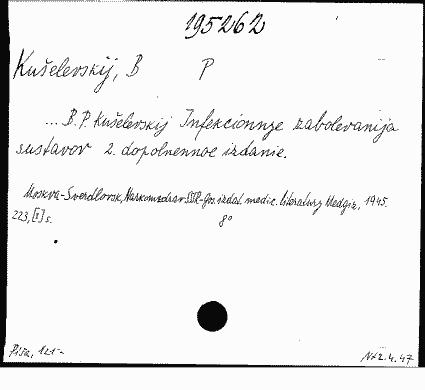 195262
Kušelevskij, B P
... B.P. Kušelevskij Infekcionnye zabolevanija
sustavov 2. dopolnennoe izdanie.
Moskva-Sverdlovsk, Narkomzdrav SSR-Gos. izdat. medic. literatury Medgiz, 1945.
223, [1] s. 8°
121-
2.4.47